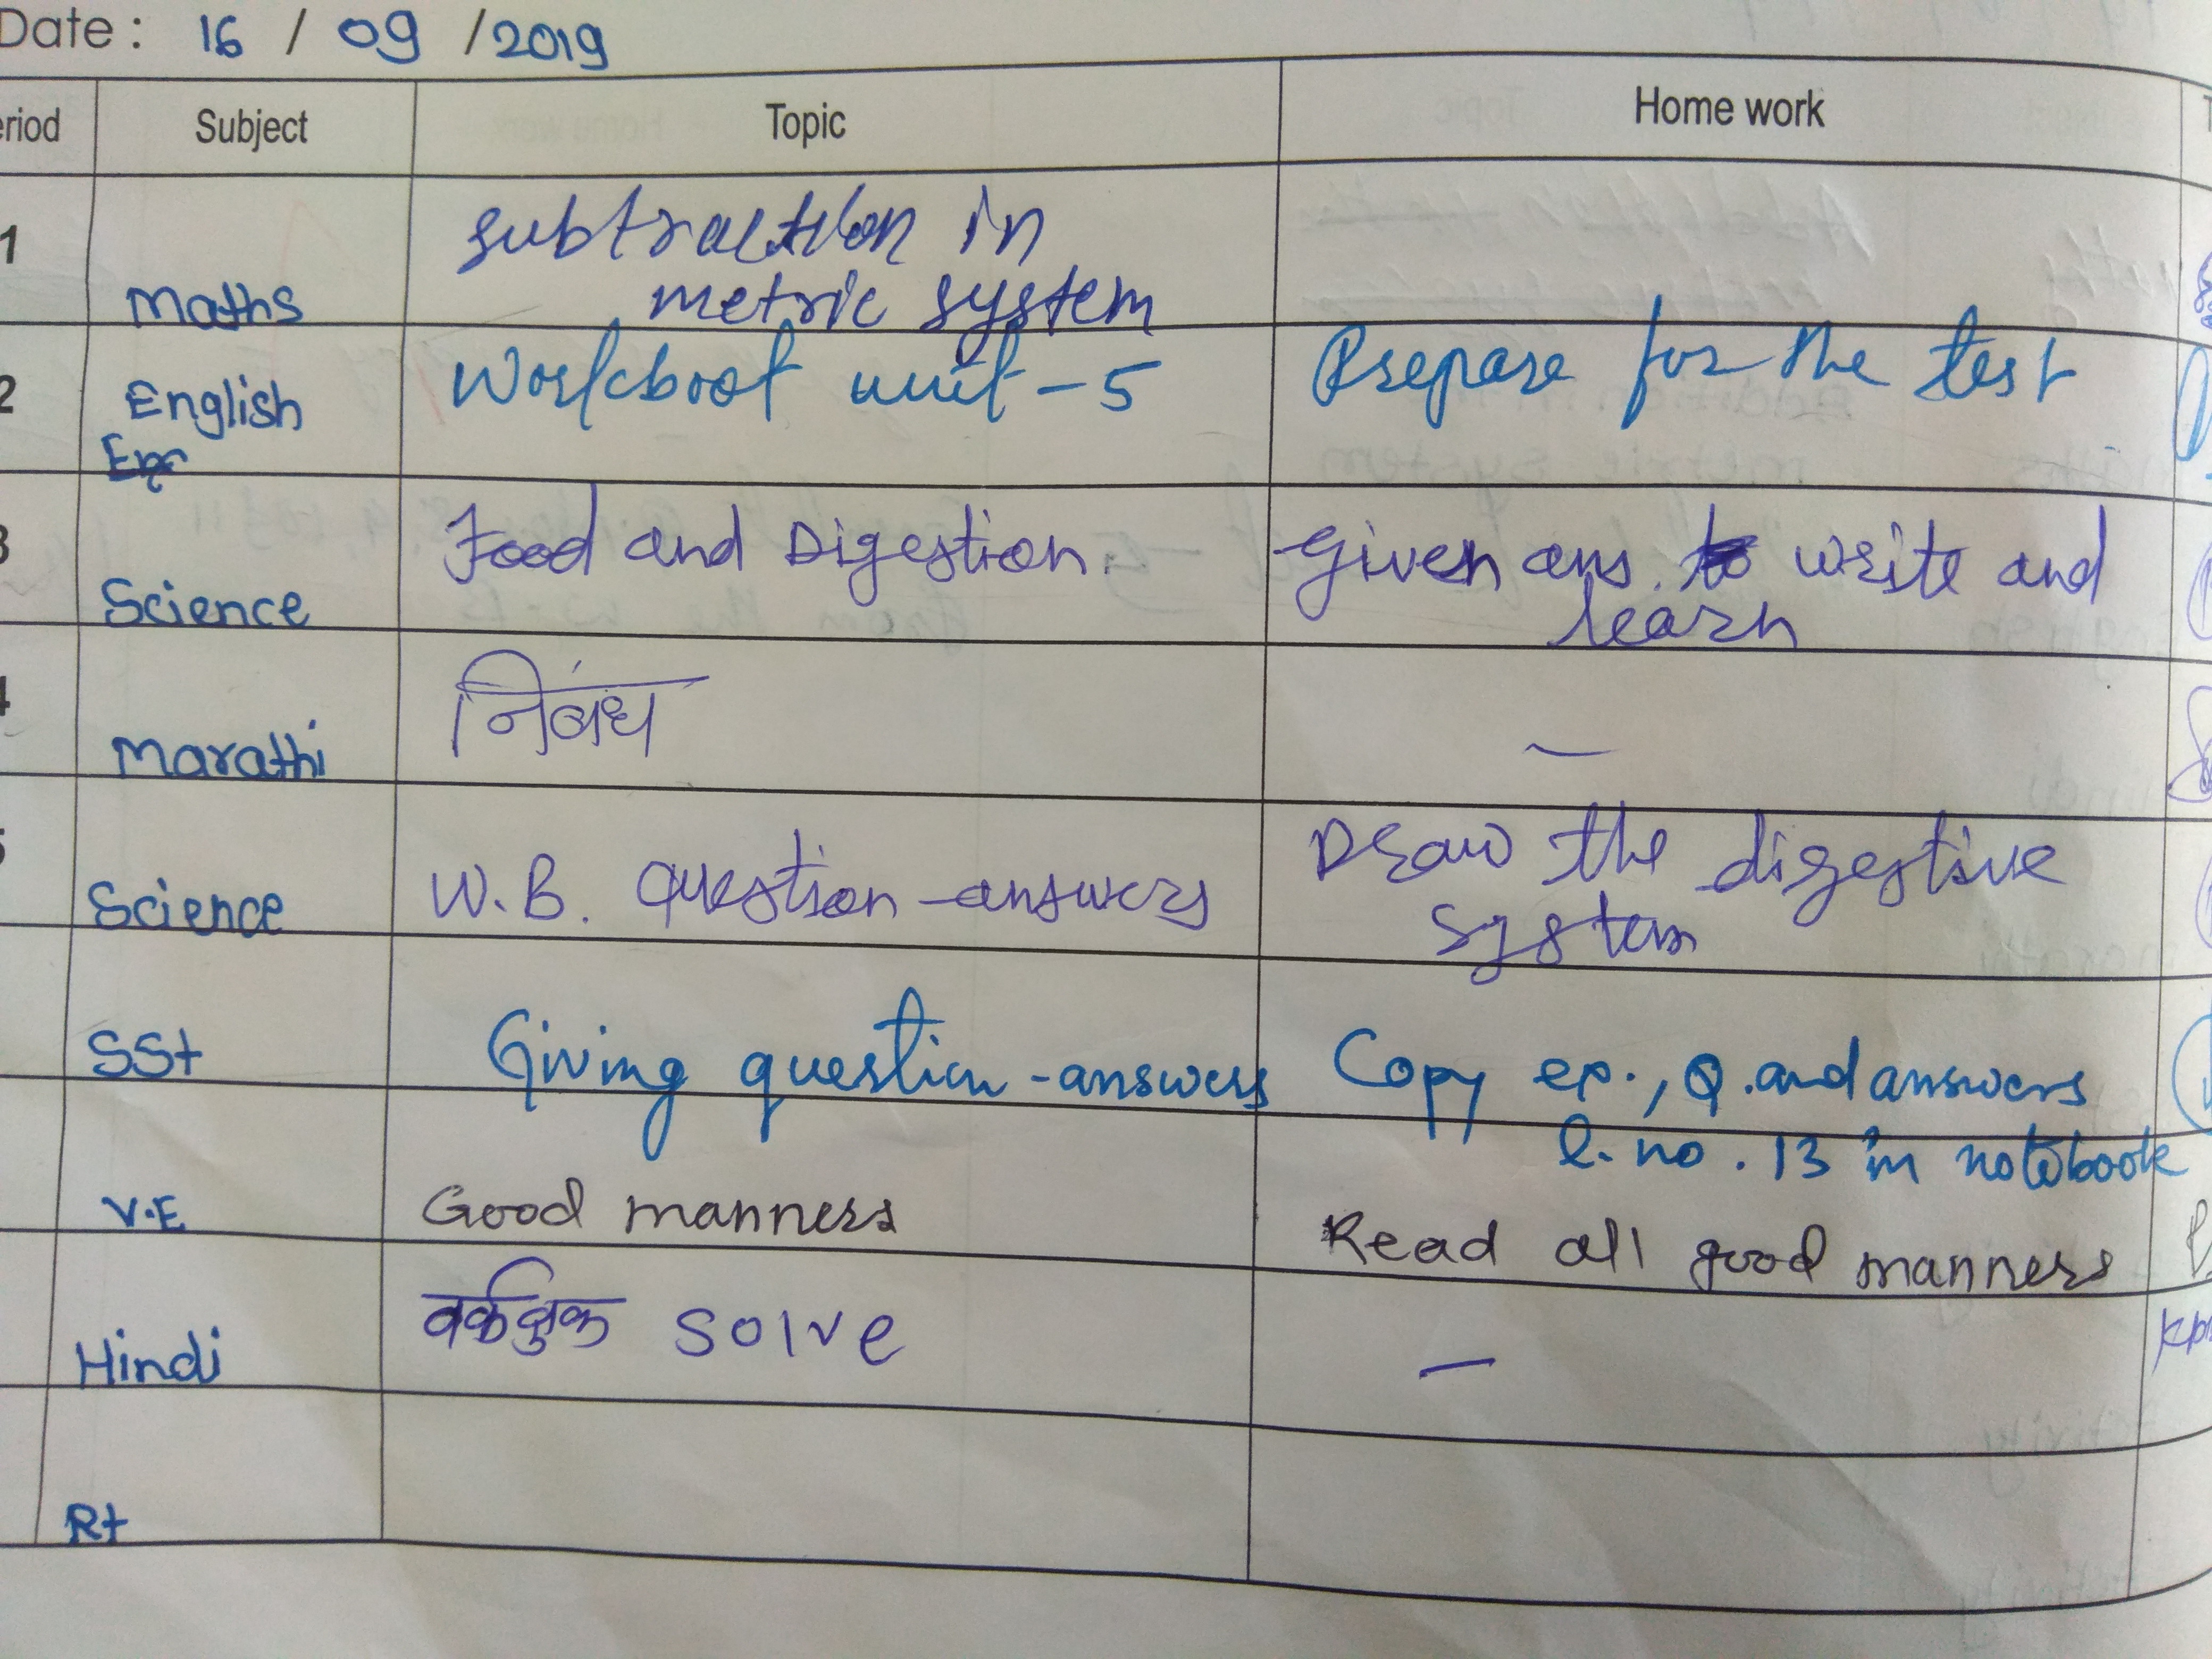 Date : 16 / 09 / 2019
eriod Subject Topic Home work
1 Maths subtraction in
metric system
2 English Workbook unit - 5 Prepare for the test
3 Science Food and Digestion. Given ans. to write and
learn
4 Marathi निबंध —
5 Science W.B. question-answers Draw the digestive
system
SSt Giving question-answers Copy ex., Q. and answers
l. no. 13 in notebook
V.E Good manners Read all good manners
Hindi वर्कबुक solve —
Rt